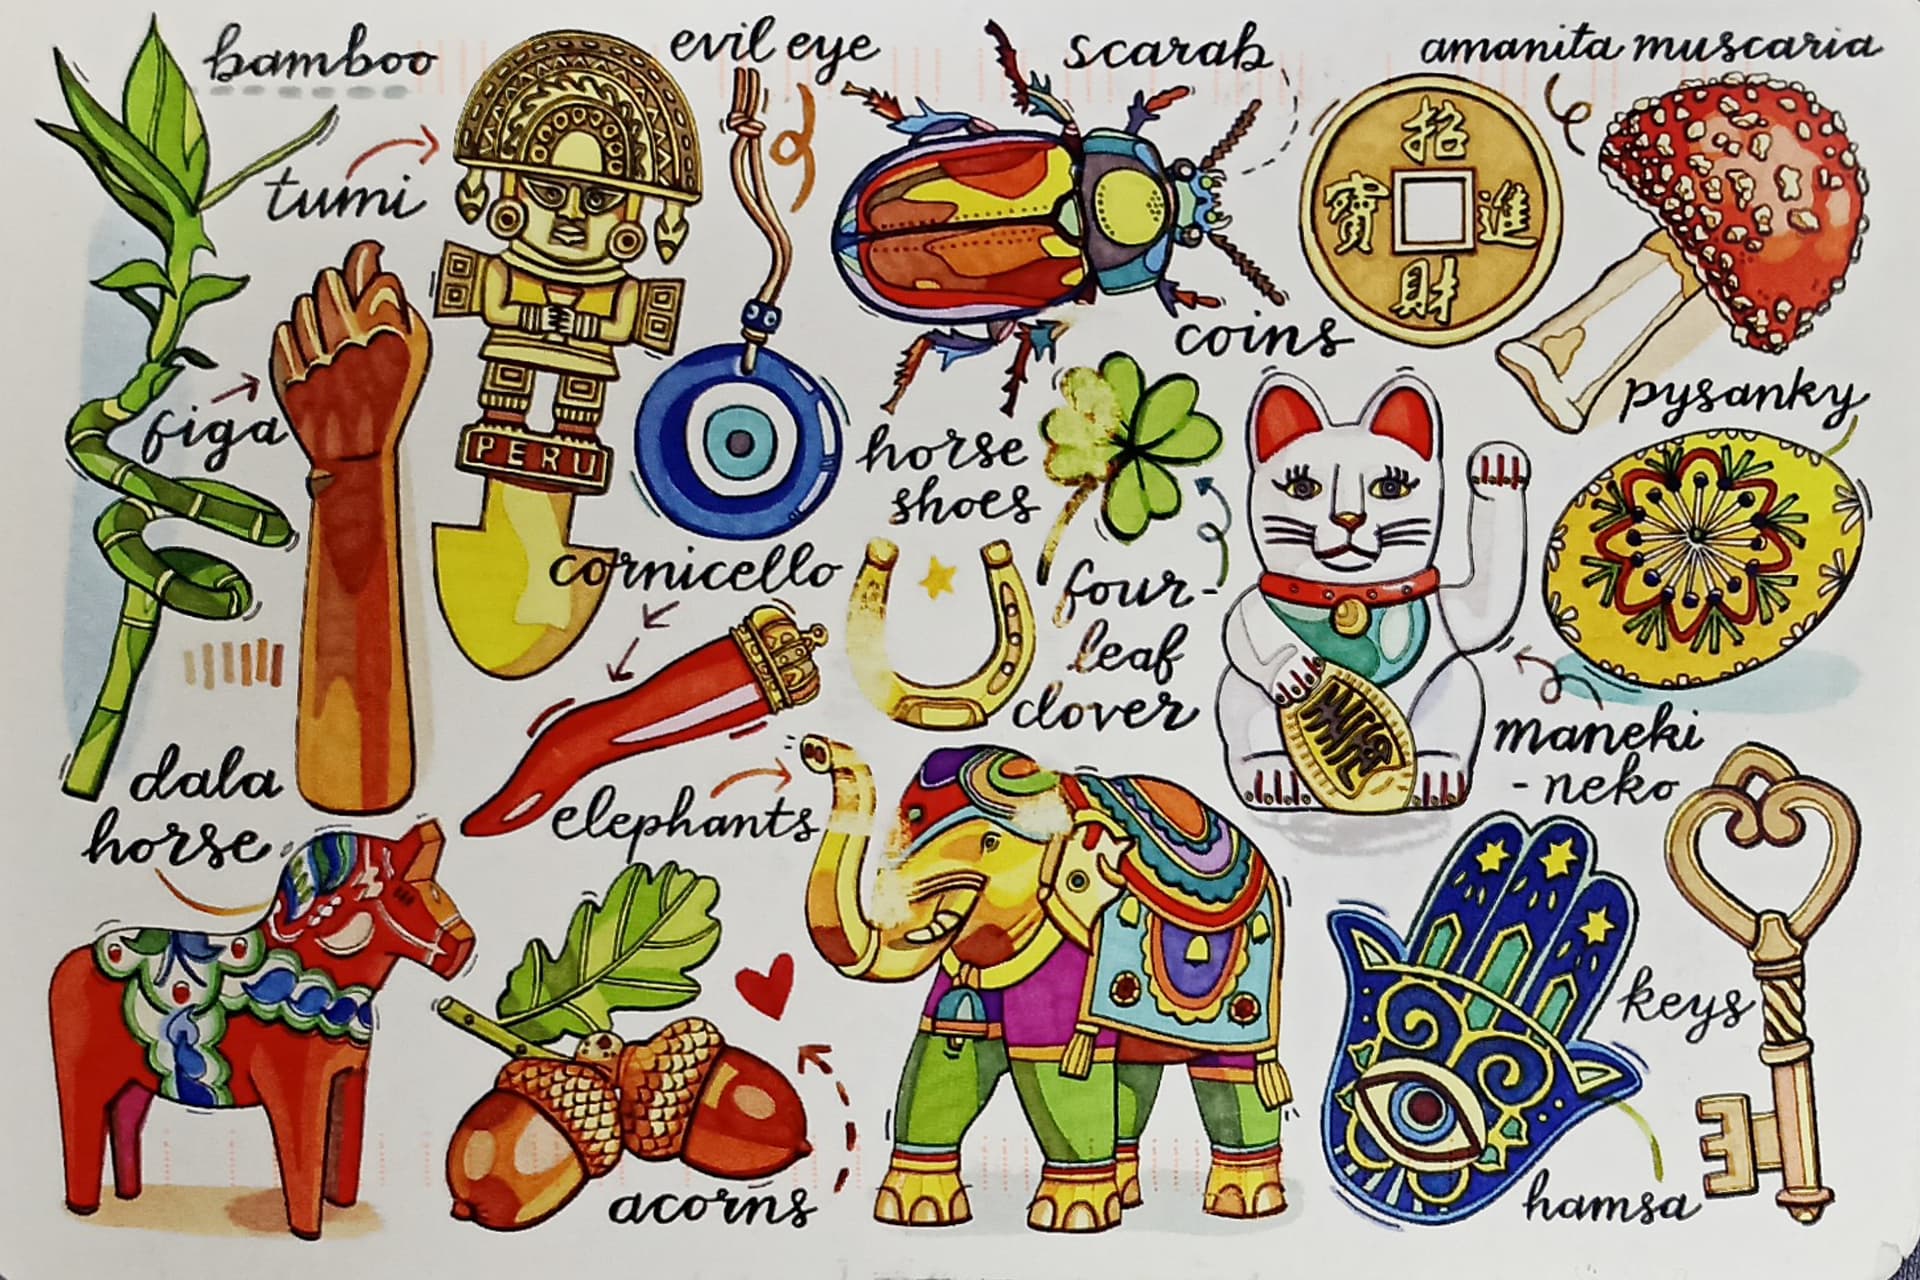 bamboo
evil eye
scarab
amanita muscaria
tumi
招
寶 進
財
coins
pysanky
figa
PERU
horse
shoes
cornicello
four-
leaf
clover
maneki
-neko
dala
horse
elephants
keys
acorns
hamsa